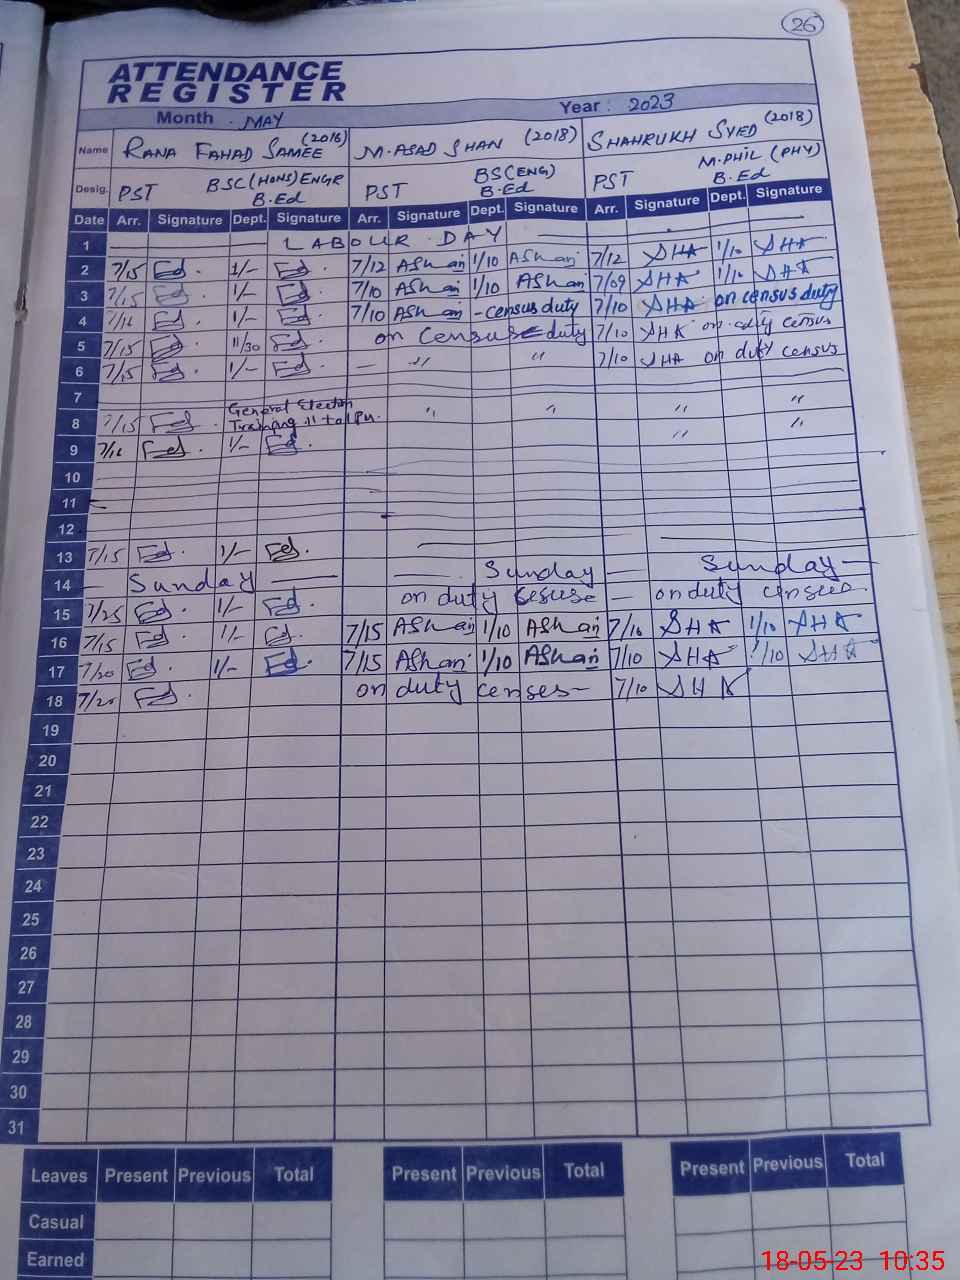 26
ATTENDANCE
REGISTER
Month MAY Year : 2023
Name RANA FAHAD SAMEE (2016) M. ASAD SHAN (2018) SHAHRUKH SYED (2018)
Desig. PST BSC (HONS) ENGR B.Ed PST BS (ENG) B.Ed PST M.PHIL (PHY) B.Ed
Date Arr. Signature Dept. Signature Arr. Signature Dept. Signature Arr. Signature Dept. Signature
1 LABOUR DAY
2 7/15 1/- 7/12 1/10 7/12 SHA 1/10 SHA
3 7/15 1/- 7/10 1/10 7/09 SHA 1/10 SHA
4 7/16 1/- 7/10 - census duty 7/10 SHA on census duty
5 7/15 11/30 on census duty 7/10 SHA on duty census
6 7/15 1/- — " " 7/10 SHA on duty census
7
8 7/15 General Election Training " " " "
9 7/16 1/- " "
10
11
12
13 7/15 1/-
14 — Sunday — — Sunday — Sunday —
15 7/25 1/- on duty — on duty
16 7/15 1/- 7/15 1/10 7/10 SHA 1/10 SHA
17 7/20 1/- 7/15 1/10 7/10 SHA 1/10 SHA
18 7/20 on duty censes- 7/10 SHA
19
20
21
22
23
24
25
26
27
28
29
30
31
Leaves Present Previous Total Present Previous Total Present Previous Total
Casual
Earned
18-05-23 10:35